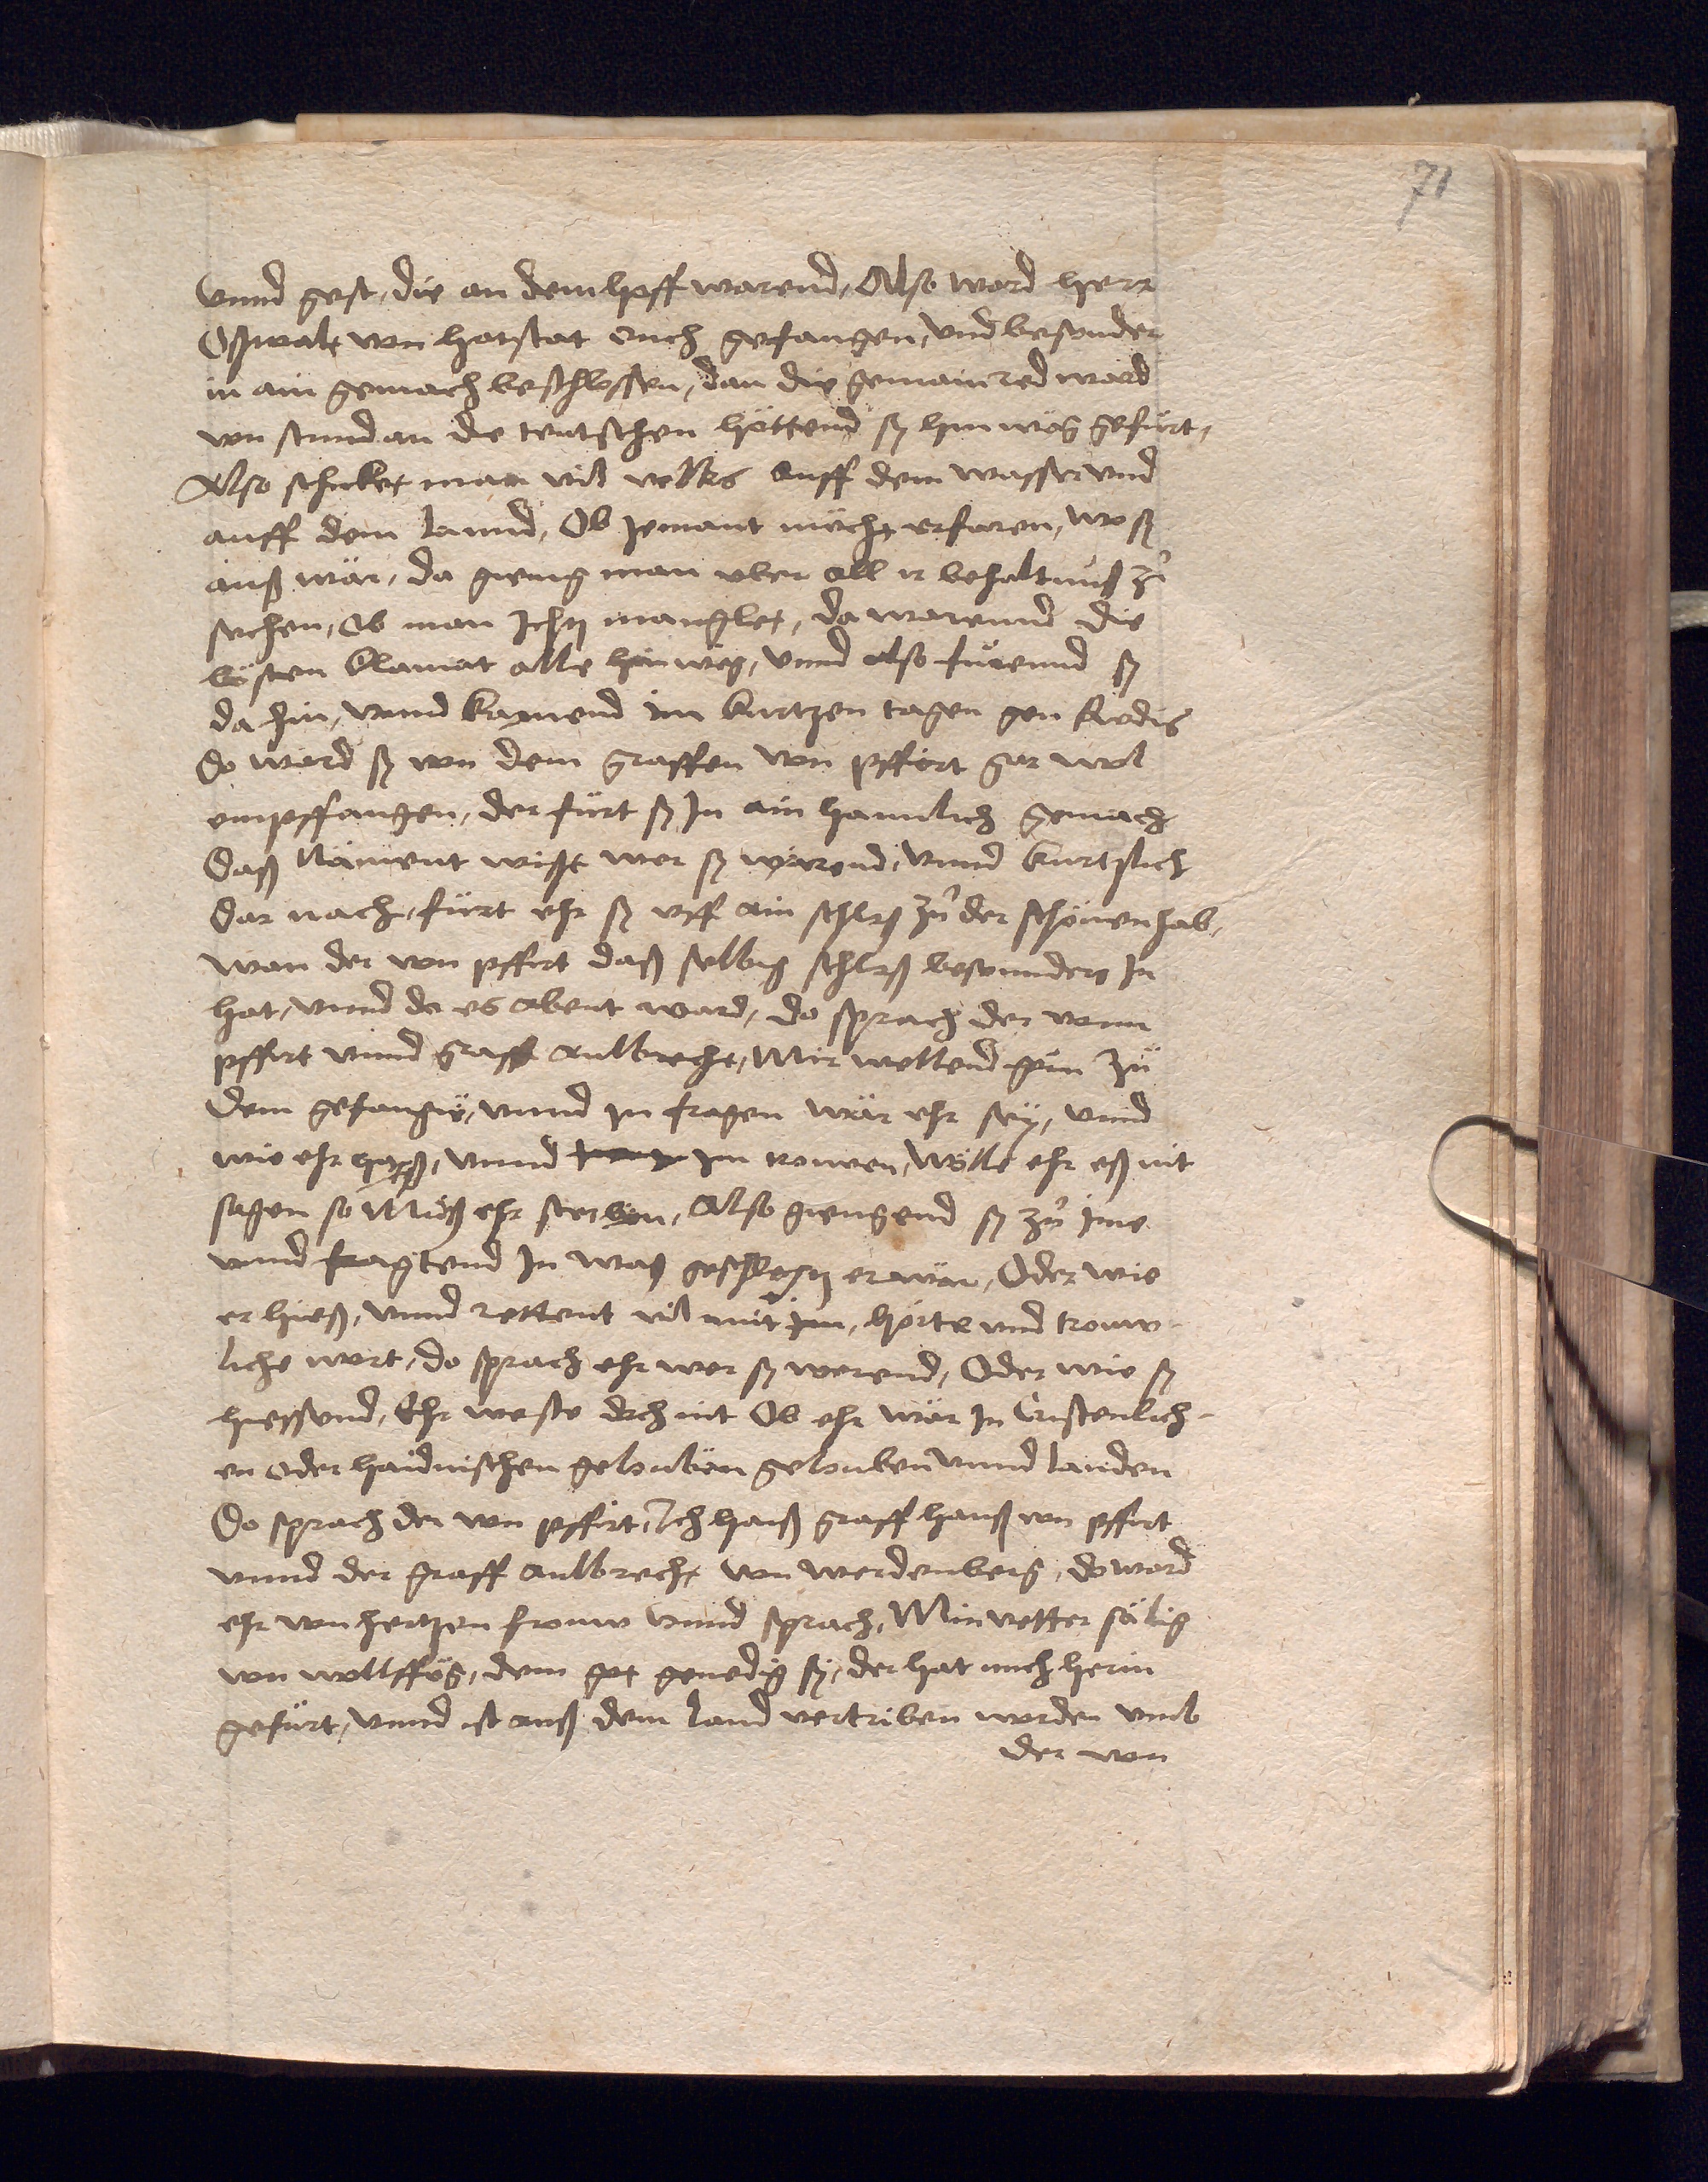 71
Vnnd gest, die an dem hoff warend, Also ward herr
Oßwalt von hatstat ouch gefangen, vnd besonder
in ain gemach beschlossen, dan die gemain red ward
von stund an die teutschen hettend sy hin wëg gefürt,
Also schicket man vil volks auff dem wasser vnd
auff dem lannd, Ob jemant mecht erfaren, wo sy
auß wär, da gieng man vber all ir behaltnuß zů
sechen, ob man Ichtz manglet, da warennd die
bësten klainat alle hin wëg, vnnd also fůrennd sy
da hin, vnnd kamend im kurtzen tagen gen Rodis
Do ward sy von dem graffen von pffirt gar wol
empffangen, der fürt sy In ain haimlich gemach
Daß Niäment wißt wer sy wärend, vnnd kurtzlich
Dar nach, fürt ehr sy vff ain schloß zů der schönen hab,
wan der von pffirt daß selbig schloß besonnders In
hat, vnnd da es abent ward, do sprach der vonn
pffirt vnnd graff aulbrecht, Mir wellend gon zů
dem gefangnë, vnnd in fragen wär ehr sëy, vnnd
wie ehr haiß, vnnd im trouwen, Wölle ehr eß nit
sagen so Můß ehr sterben, Also giengend sy zů ime
vnnd fragtend In waß geschlechtz er wär, Oder wie
er hieß, vnnd rettent vil mit im, hörte vnd trouw-
liche wort, do sprach ehr wer sy werend, Oder wie sy
hiessend, Ehr weste doch nit Ob ehr wär In Cristenlich-
en oder haidnischen gelouben gelouben vnnd landen
Do sprach der von pffirt, Ich haiß graff hanß von pffirt
vnnd der graff aulbrecht von werdenberg, do ward
ehr von hertzen frouw vnnd sprach, Min vetter sälig
von wolffëg, dem got genedig sy, der hat mich herin
gefürt, vnnd ist auß dem land vertriben worden vmb
der von